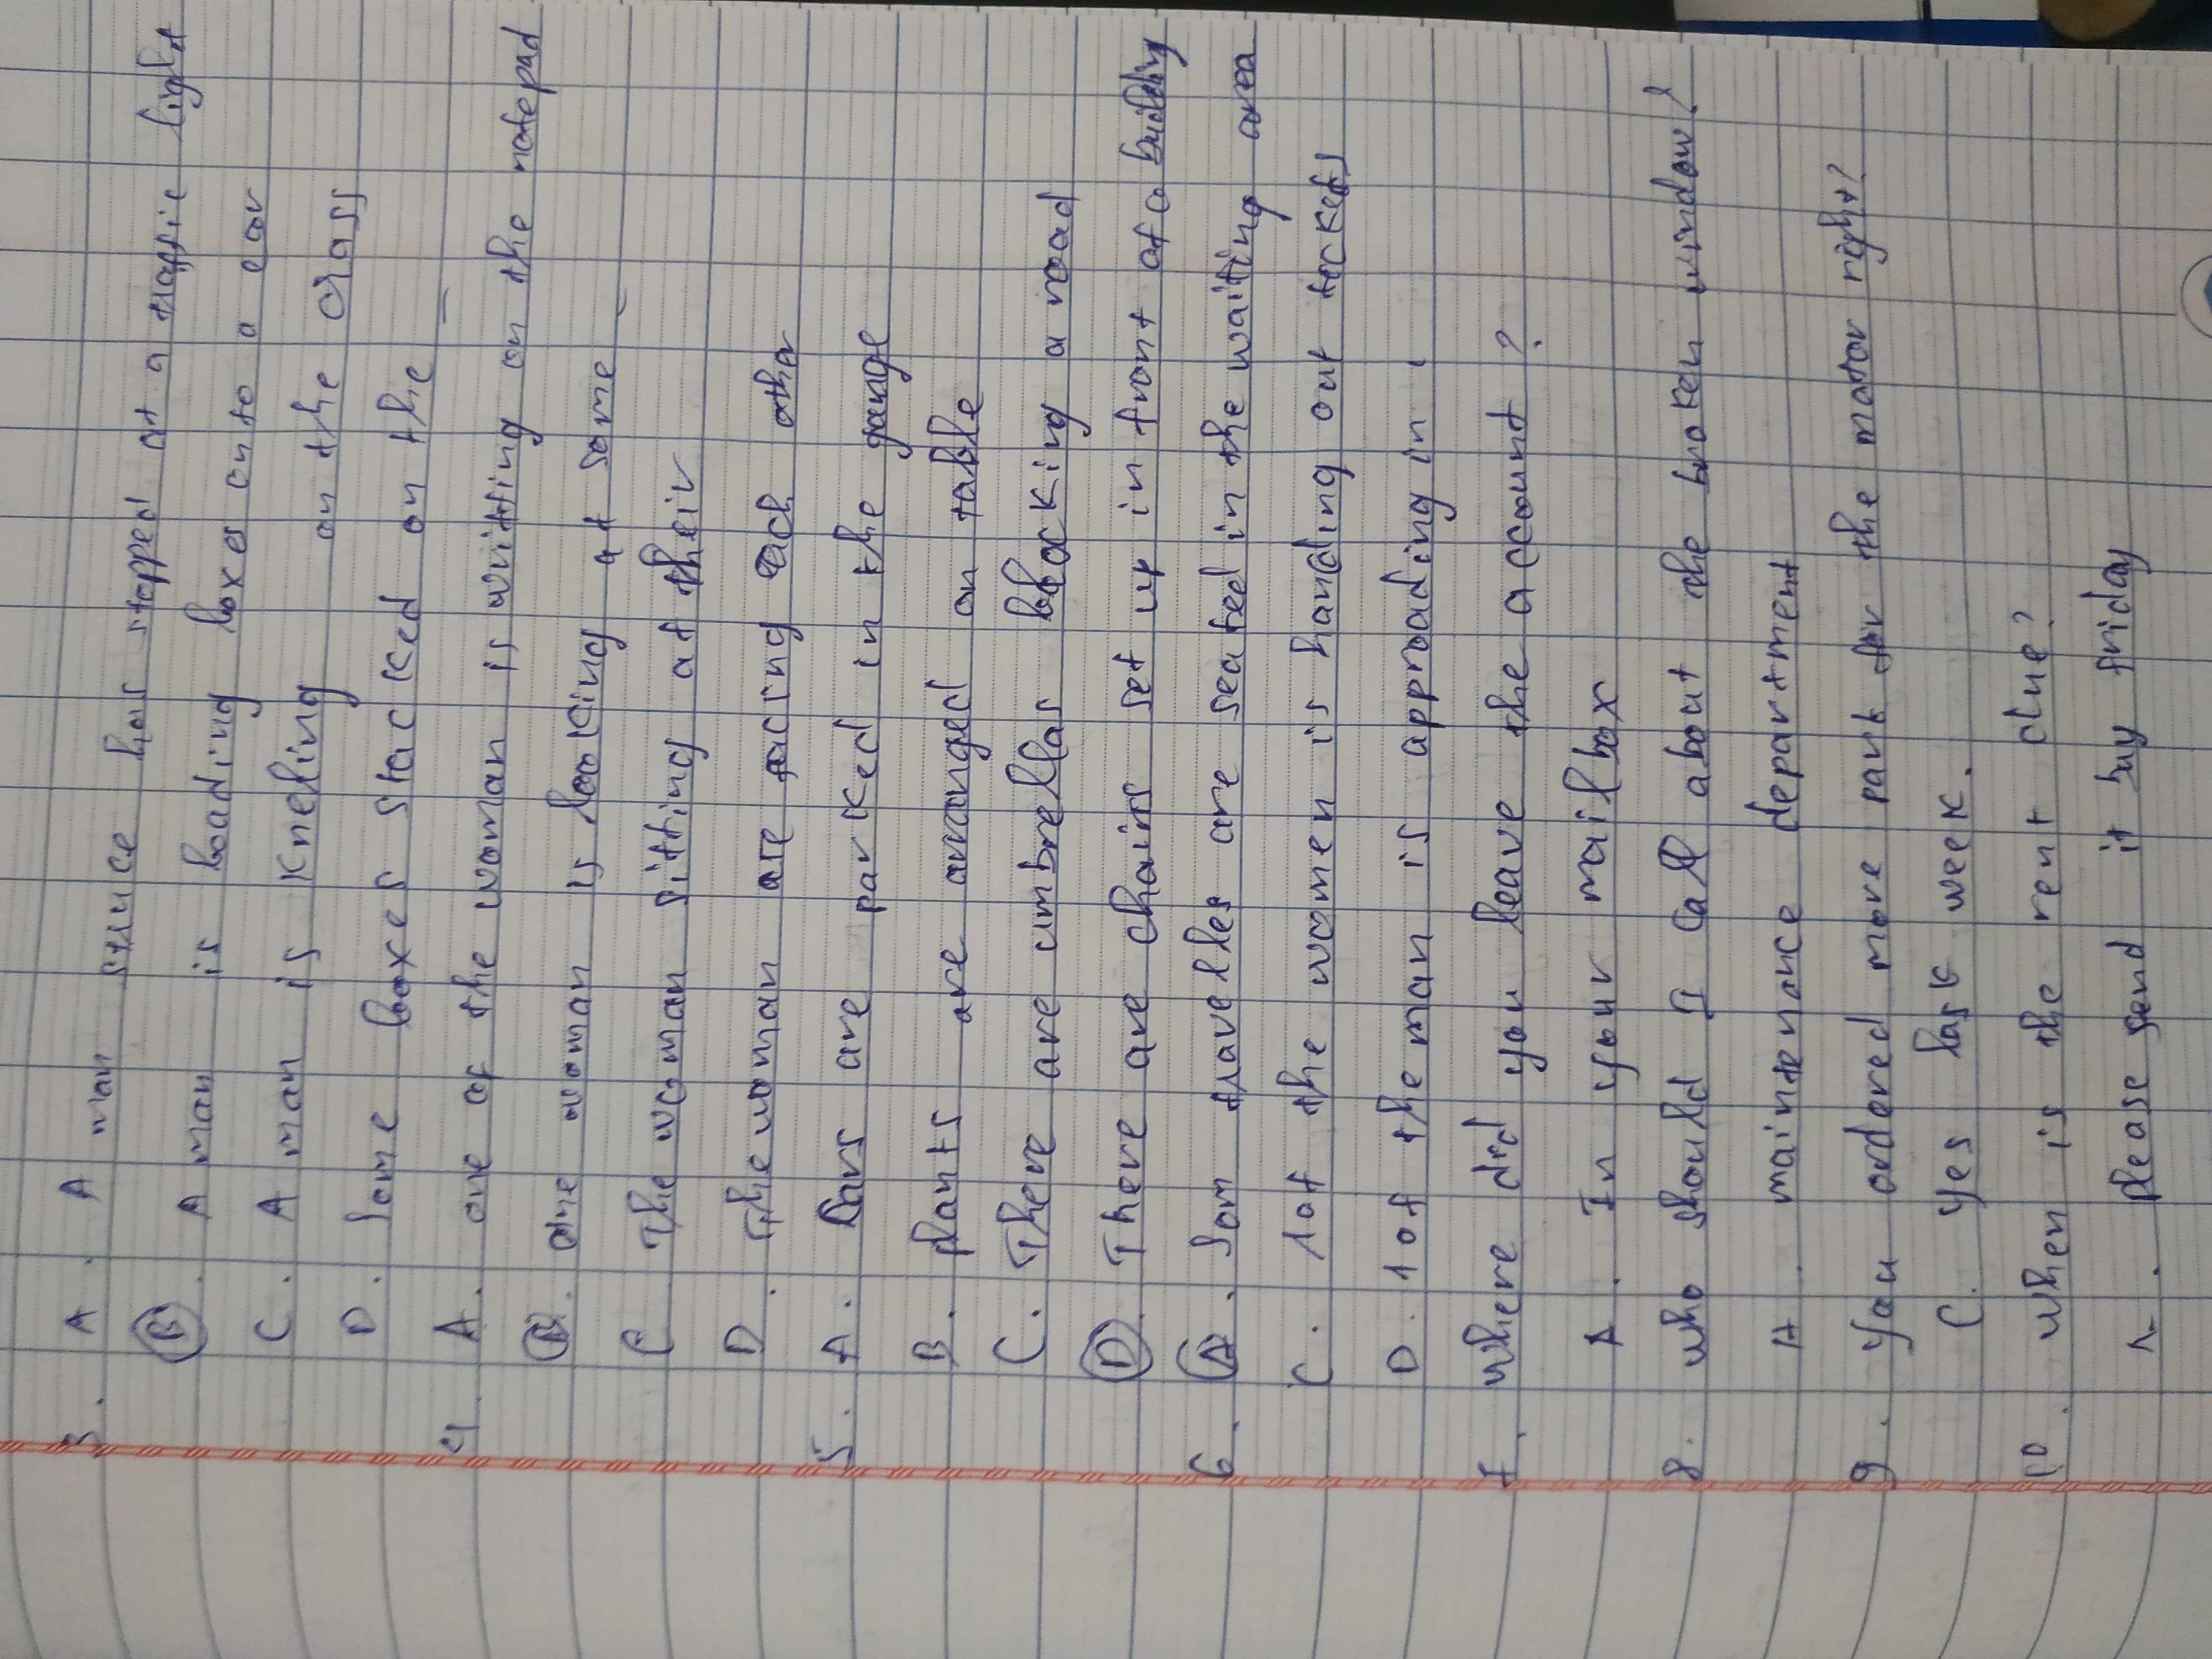 3. A. A man since has stopped at a traffic light
B. A man is loading boxes onto a car
C. A man is kneling on the Grass
D. Some boxes stacked on the _
4. A. one of the woman is writting on the notepad
B. one woman is looking at some _
C The woman sitting at their
D. The woman are facing each other
5. A. Cars are parked in the garage
B. plants are arranged on table
C. There are umbrellas blocking a road
D There are chairs set up in front of a building
6. A. Som travelles are seated in the waiting area
C. 1 of the women is handing out tickets
D. 1 of the man is approading in
7. Where did you leave the account?
A. In your mailbox
8. who should I call about the broken window?
A. maintenance department
9. you ordered more part for the motor right?
C. yes last week.
10. When is the rent due?
A. please send it buy friday